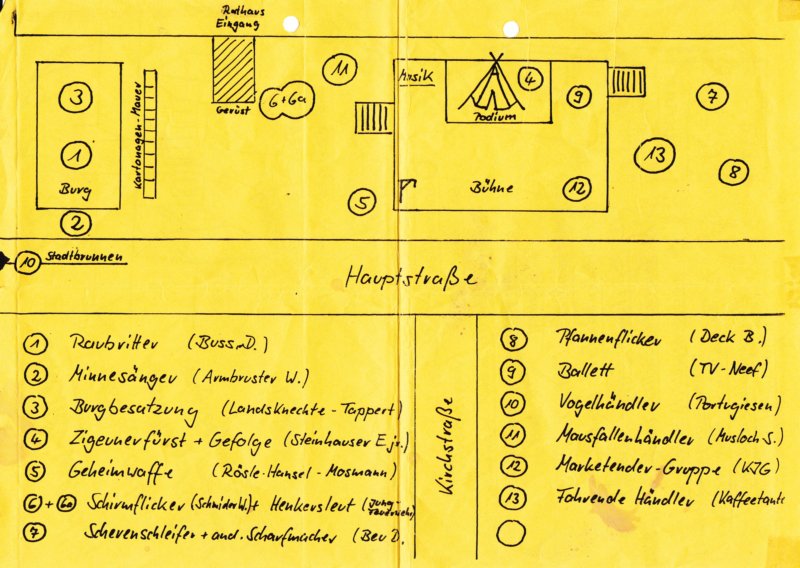 Rathaus
Eingang
11
Musik
4
3
6+6a
9
7
Gerüst
Podium
Kartonagen-Mauer
1
13
8
Burg
Bühne
12
5
2
10 Stadtbrunnen
Hauptstraße
Kirchstraße
1 Raubritter (Buss D.)
2 Minnesänger (Armbruster W.)
3 Burgbesatzung (Landsknechte-Tappert)
4 Zigeunerfürst + Gefolge (Steinhauser E.jr.)
5 Geheimwaffe (Rösle-Hansel-Mosmann)
6 + 6a Schirmflicker (Schnider W.) + Henkersleut (Jung-
7 Scherenschleifer + and. Scharfmacher (Beu D.
8 Pfannenflicker (Deck B.)
9 Ballett (TV-Neef)
10 Vogelhändler (Portugiesen)
11 Mausfallenhändler (Musloch S.)
12 Marketender-Gruppe (KJG)
13 Fahrende Händler (Kaffeetante